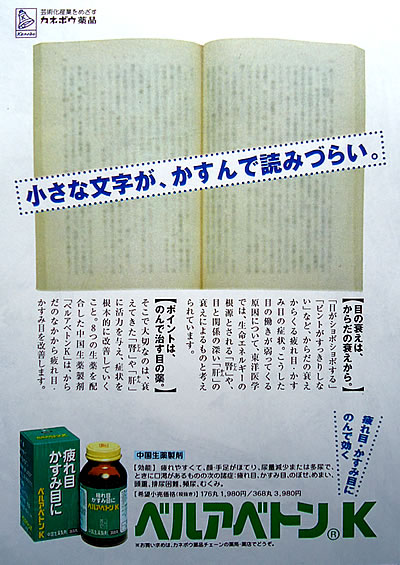 芸術化産業をめざす
カネボウ薬品
Kanebo
小さな文字が、かすんで読みづらい。
【目の衰えは、
からだの衰えから。】
「目がショボショボする」
「ピントがすっきりしな
い」など、からだの衰え
からくる疲れ目・かす
み目の症状。こうした
目の働きが弱ってくる
原因について、東洋医学
では、生命エネルギーの
根源とされる「腎」や、
目と関係の深い「肝」の
衰えによるものと考え
られています。
【ポイントは、
のんで治す目の薬。】
そこで大切なのは、衰
えてきた「腎」や「肝」
に活力を与え、症状を
根本的に改善していく
こと。8つの生薬を配
合した中国生薬製剤
「ベルアベトンK」は、から
だのなかから疲れ目・
かすみ目を改善します。
疲れ目・かすみ目に
のんで効く
疲れ目
かすみ目に
ベルアベトンK
疲れ目
かすみ目に
ベルアベトンK
中国生薬製剤
【効能】疲れやすくて、顔・手足がほてり、尿量減少または多尿で、
ときに口渇があるものの次の諸症:疲れ目、かすみ目、のぼせ、めまい、
頭重、排尿困難、頻尿、むくみ。
[希望小売価格(税抜き)]176丸 1,980円/368丸 3,980円
ベルアベトン®K
※お買い求めは、カネボウ薬品チェーンの薬局・薬店でどうぞ。